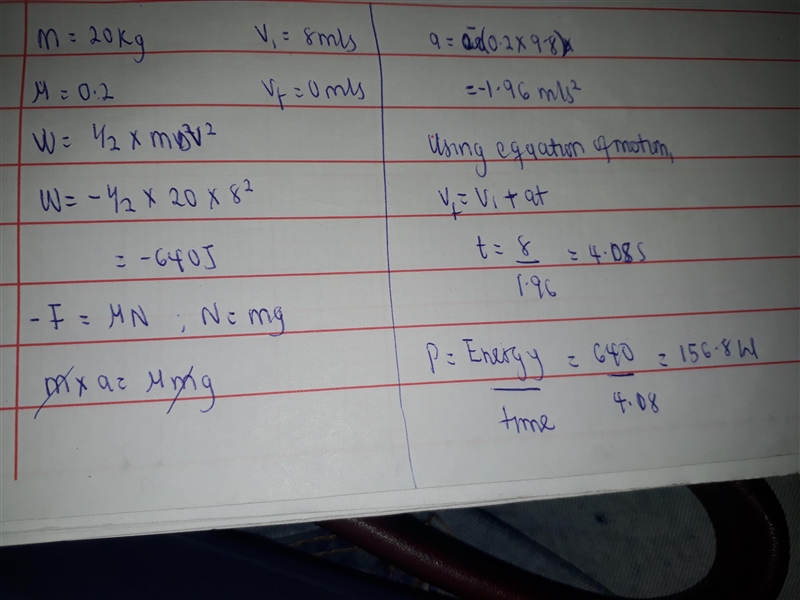 m = 20kg Vi = 8m/s
μ = 0.2 Vf = 0m/s
W = 1/2 × mv²
W = -1/2 × 20 × 8²
= -640J
-F = μN ; N = mg
m × a = μmg
a = (0.2 × 9.8)
= -1.96 m/s²
Using equation of motion,
Vf = Vi + at
t = 8/1.96 = 4.08s
P = Energy/time = 640/4.08 = 156.8W